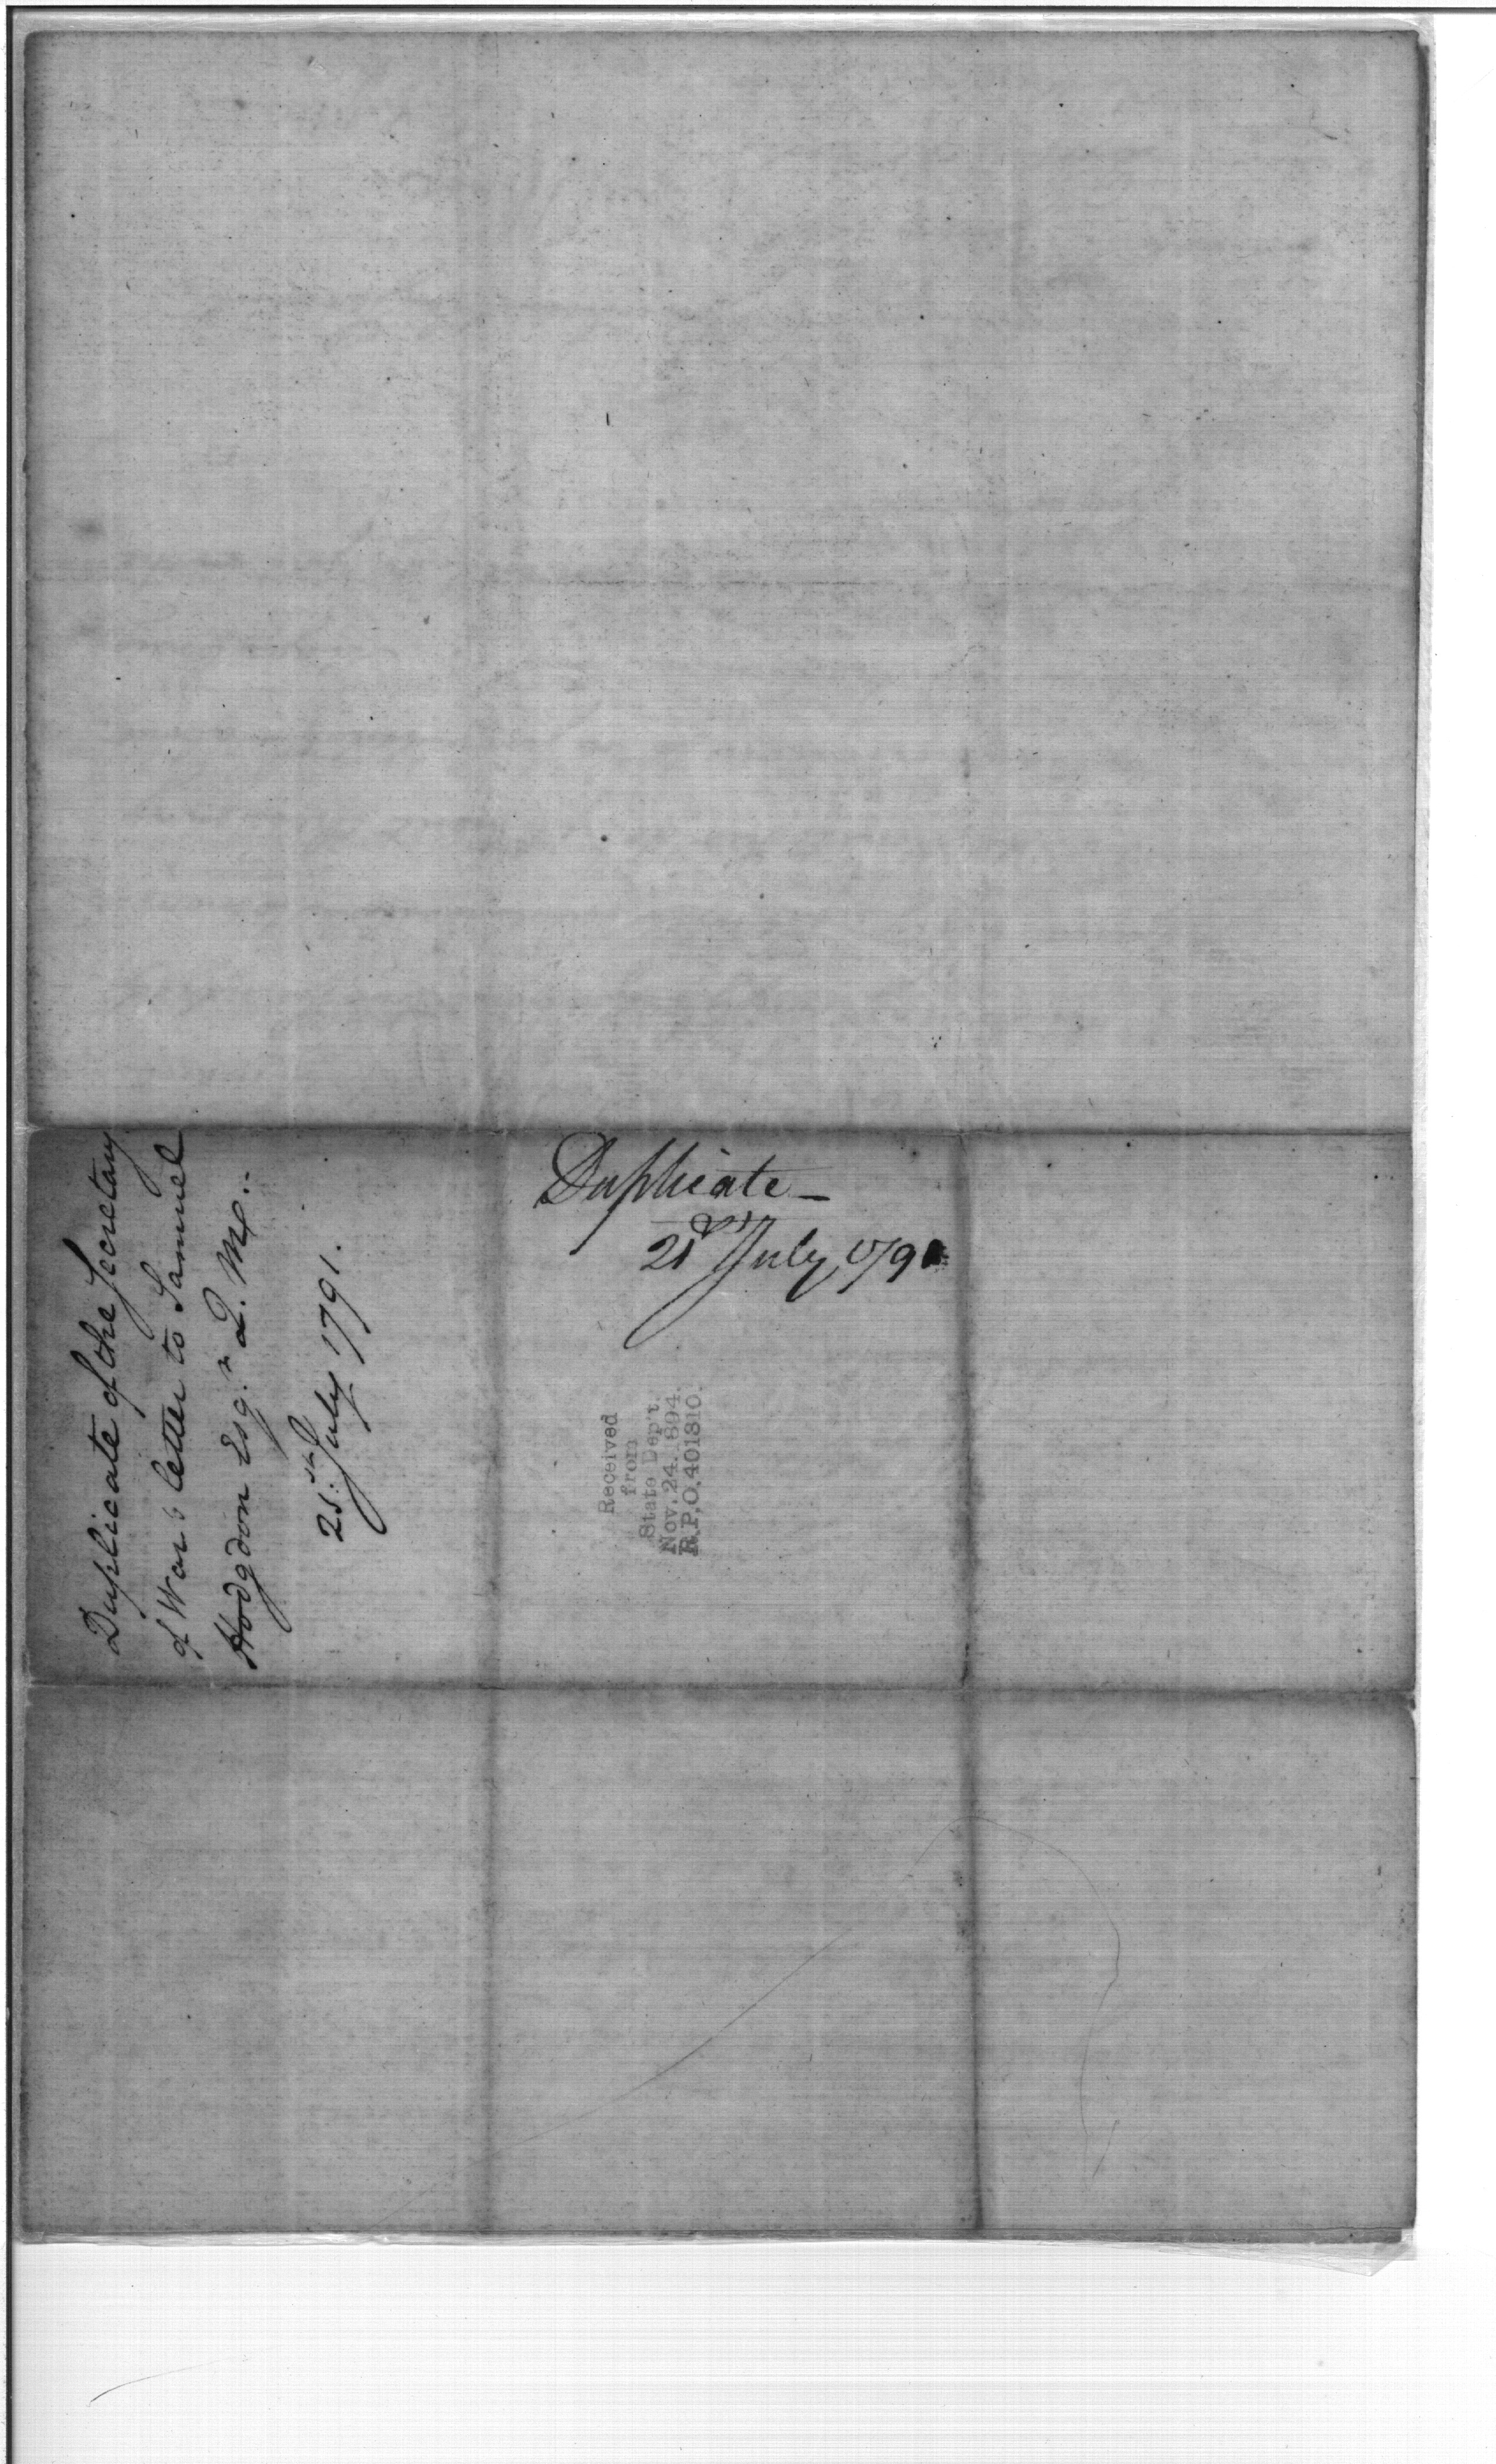 Duplicate of the Secretary
of War's letter to Samuel
Hodgdon Esq.r Q. M.
25.th July 1791.
Duplicate—
July 1791
Received
from
State Dep't.
Nov. 24. 1894.
R.P.O. 401310.